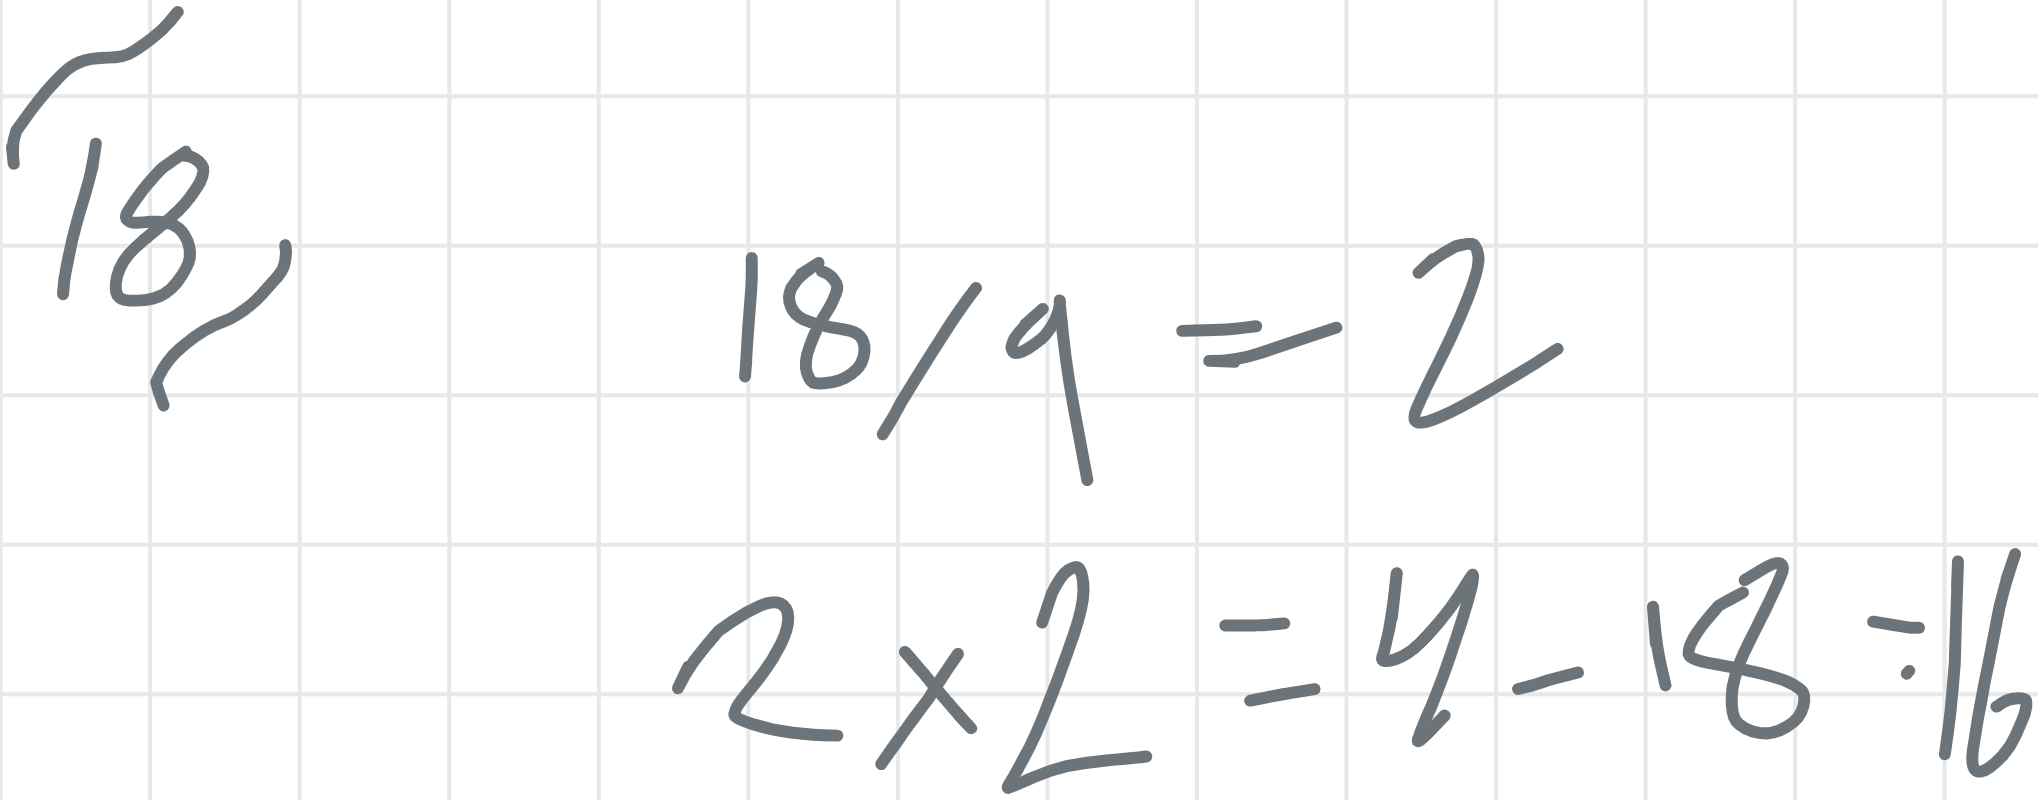 18
18/9 = 2
2 x 2 = 4 - 18 = 16